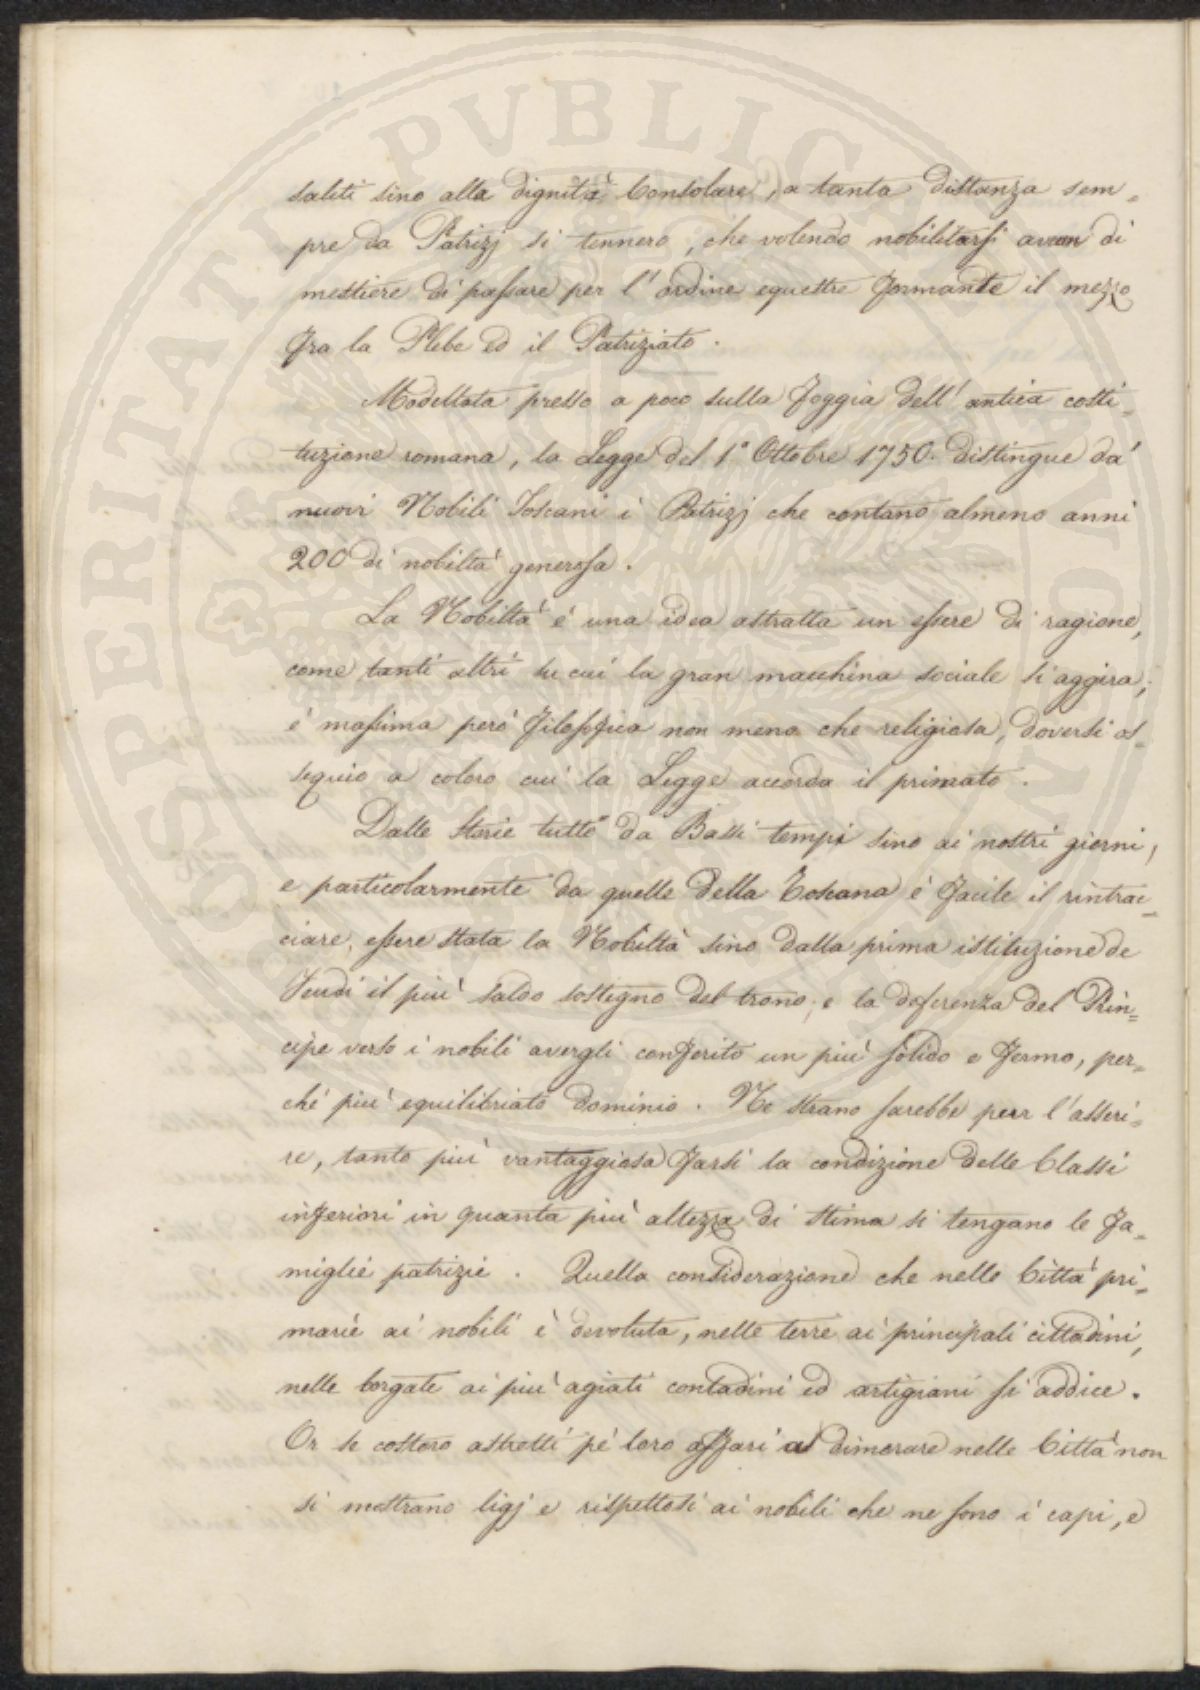 saliti sino alla dignità Consolare, a tanta distanza sem-
pre da Patrizj si tennero, che volendo nobilitarsi avean di
mestiere di passare per l'ordine equestre formante il mezzo
fra la Plebe ed il Patriziato.
Modellata presso a poco sulla foggia dell'antica costi-
tuzione romana, la Legge del 1° Ottobre 1750. distingue da'
nuovi Nobili Toscani i Patrizj che contano almeno anni
200 di nobiltà generosa.
La Nobiltà è una idea astratta un essere di ragione,
come tanti altri su cui la gran macchina sociale si aggira;
è massima però filosofica non meno che religiosa, doversi os-
sequio a coloro cui la Legge accorda il primato.
Dalle Storie tutte da Bassi tempi sino ai nostri giorni,
e particolarmente da quelle della Toscana è facile il rintrac=
ciare, essere stata la Nobiltà sino dalla prima istituzione de
Feudi il più saldo sostegno del trono; e la deferenza del Prin=
cipe verso i nobili avergli conferito un più solido e fermo, per=
chè più equilibriato dominio. Ne strano sarebbe pur l'asseri=
re, tanto più vantaggiosa farsi la condizione delle Classi
inferiori in quanta più altezza di stima si tengano le fa=
miglie patrizie. Quella considerazione che nelle Città pri=
marie ai nobili è devoluta, nelle terre ai principali cittadini,
nelle borgate ai più agiati contadini ed artigiani si addice.
Or se costoro astretti pe' loro affari a dimorare nelle Città non
si mostrano ligj e rispettosi ai nobili che ne sono i capi, e
SOSPERITATI PVBLICAE AVG